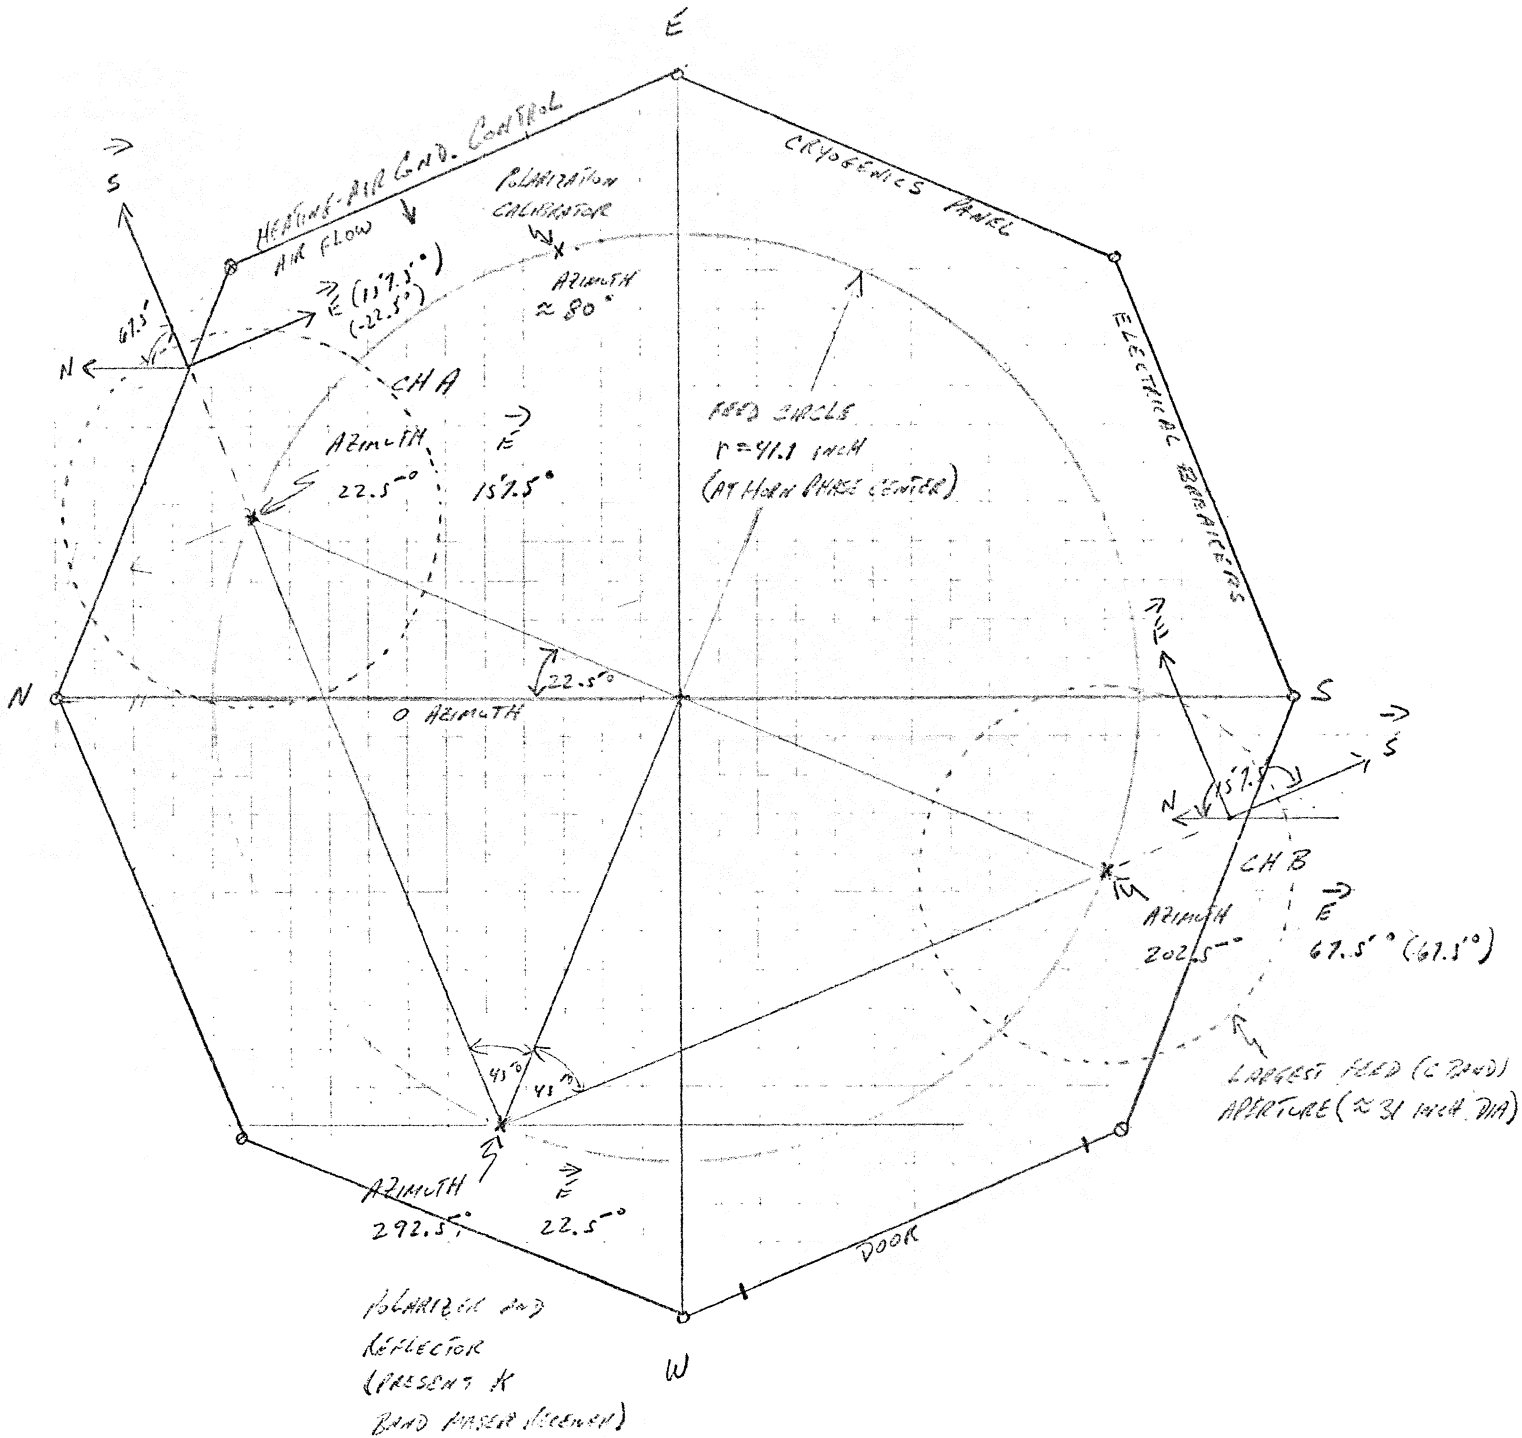 E
HEATING-AIR CND. CONTROL
AIR FLOW
CRYOGENICS PANEL
POLARIZATION
CALIBRATOR
AZIMUTH
≈ 80°
S
67.5°
N
E (157.5°)
(-22.5°)
CH A
AZIMUTH E
22.5° 157.5°
FEED CIRCLE
r = 41.1 INCH
(AT HORN PHASE CENTER)
ELECTRICAL BREAKERS
N
22.5°
O AZIMUTH
S
E
S
157.5
N
CH B
AZIMUTH E
202.5° 67.5° (67.5°)
LARGEST FEED (C BAND)
APERTURE (≈ 31 INCH DIA)
45° 45°
AZIMUTH E
292.5° 22.5°
DOOR
POLARIZER AND
REFLECTOR
(PRESENT K
BAND MASER RECEIVER)
W